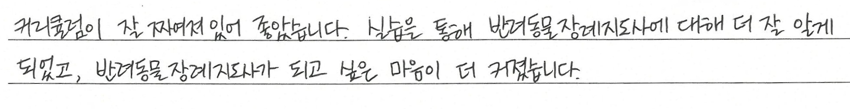 커리큘럼이 잘 짜여져있어 좋았습니다. 실습을 통해 반려동물장례지도사에 대해 더 잘 알게
되었고, 반려동물장례지도사가 되고 싶은 마음이 더 커졌습니다.